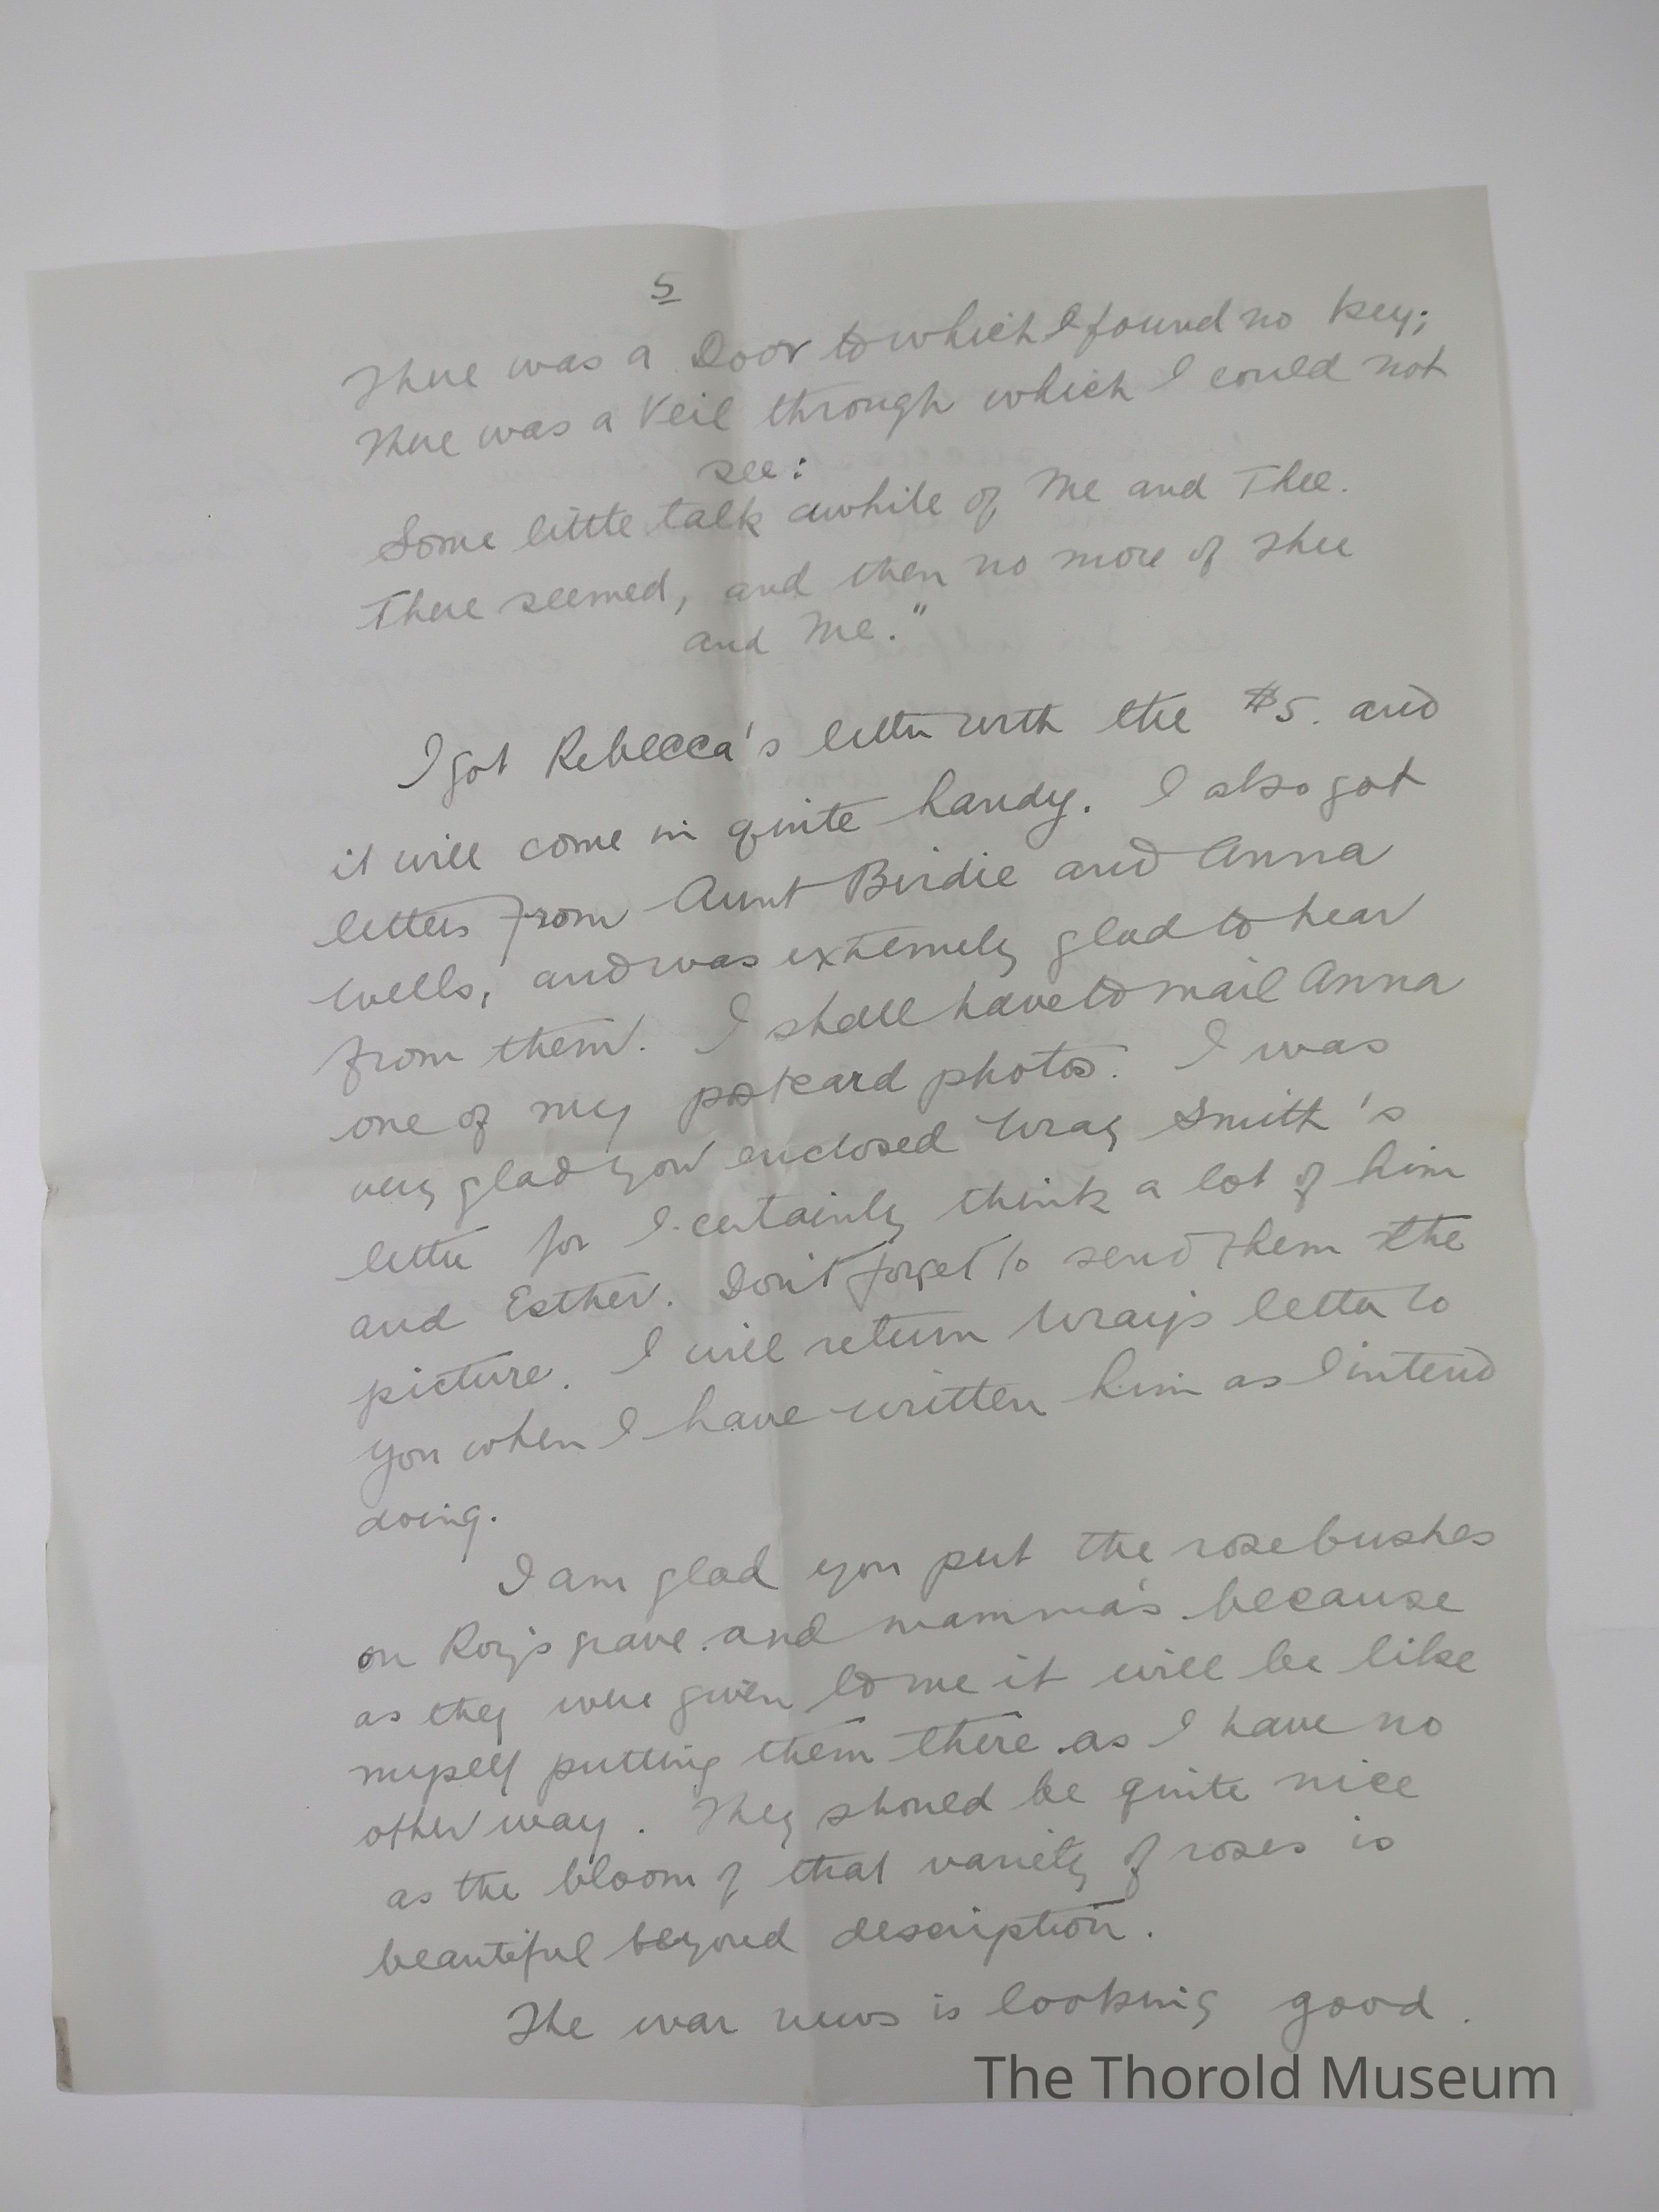 5
There was a Door to which I found no key;
There was a Veil through which I could not
see:
Some little talk awhile of Me and Thee.
There seemed, and then no more of Thee
and Me."
I got Rebecca's letter with the $5. and
it will come in quite handy. I also got
letters from Aunt Birdie and Anna
Wells, and was extremely glad to hear
from them. I shall have to mail Anna
one of my postcard photos. I was
very glad you enclosed Wray Smith's
letter for I certainly think a lot of him
and Esther. Don't forget to send them the
picture. I will return Wray's letter to
you when I have written him as I intend
doing.
I am glad you put the rosebushes
on Roy's grave and mamma's because
as they were given to me it will be like
myself putting them there as I have no
other way. They should be quite nice
as the bloom of that variety of roses is
beautiful beyond description.
The war news is looking good.
The Thorold Museum